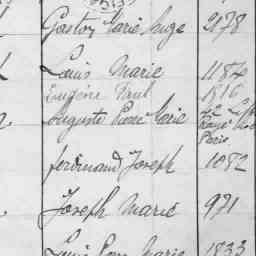 Gaston Marie Ange 2178
Louis Marie 1184
Eugène Paul 1816
Auguste Pierre Marie
Paris
Ferdinand Joseph 1082
Joseph Marie 971
Louis Marie 1833